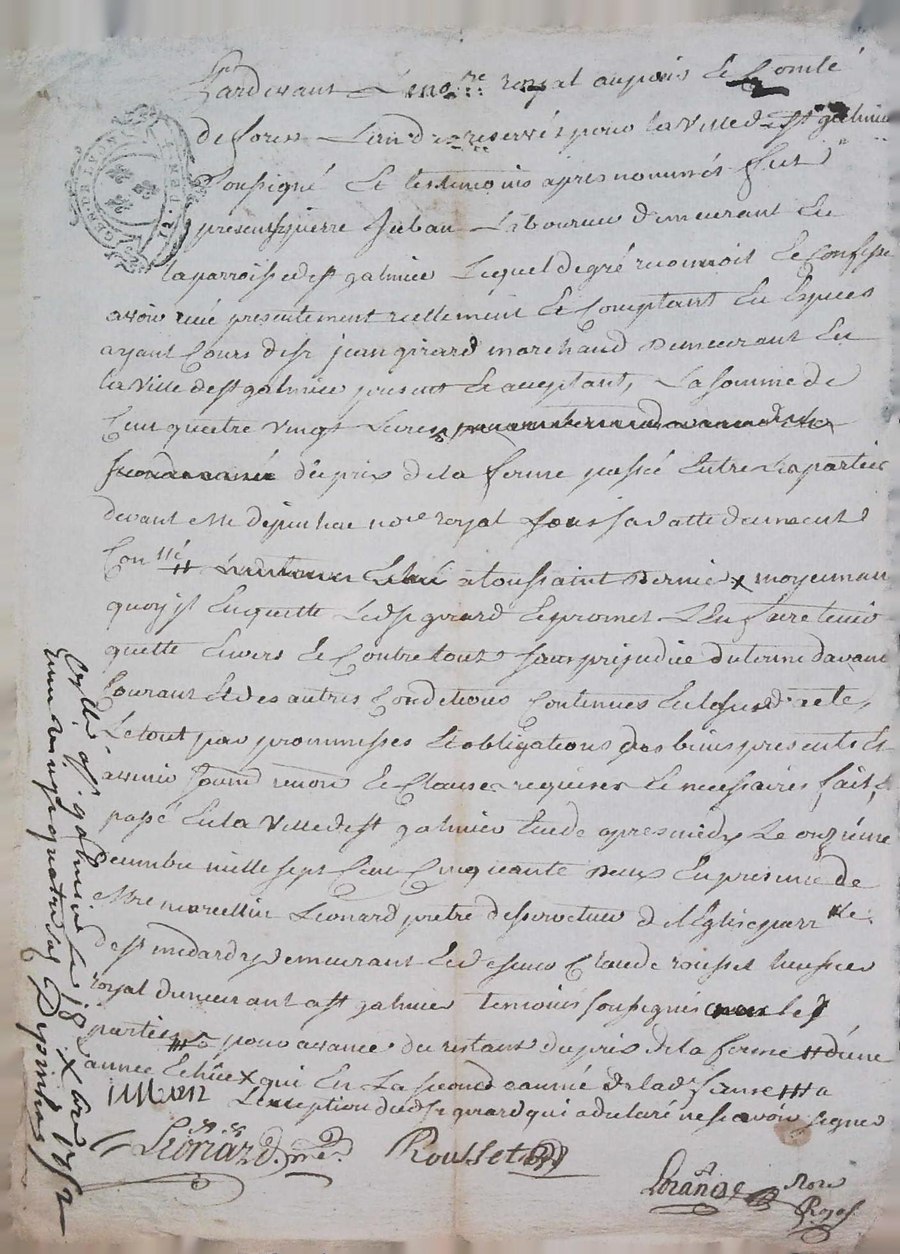 Pardevant Le no.re royal au païs Et Comté
de forez reservés pour la Ville de st galmier
soussigné Et temoins apres nommés fut
present pierre Juban Laboureur demeurant En
la parroisse de st galmier Lequel de gré reconnoit Et Confesse
avoir reçu presentement reellement Et Comptant En Especes
ayant Cours de sr jean girard marchand Demeurant En
la Ville de st galmier present Et acceptant, La somme de
Cent quatre vingt Livres
du prix de la ferme passé Entre Les parties
devant Me depinhac no.re royal sous sa datte duement
Con.llé # a toussaint dernier x moyennant
quoy il En quitte Ledt sr girard Et promet L'En faire tenir
quitte Envers Et Contre tous sans prejudice du terme davant
Courant Et des autres Conditions Contenues Audt acte,
Le tout par promesses Et obligations des biens presents Et
avenir soumn renon Et Clauses requises Et necessaires, fait &
passé En la Ville de st galmier Etude apres midy Le onzième
decembre mille sept Cent Cinquante Deux En presence de
Mre marcellin Leonard pretre desserviteur de l'Eglise parr.lle
de st medard y demeurant Et de sieur Claude rousset huissier
royal demeurant a st galmier temoins soussignés les
parties pour avance du restant du prix de la ferme # d'une
année Echüe x qui Est La seconde année de lad. ferme #
L'exception dudt sr girard qui a declaré ne sçavoir signer
Leonard. ptre. Rousset
no.re Royal
Cllé a st galmier le 18 xbre 1752
reçu vingt quatre sols Depinhac